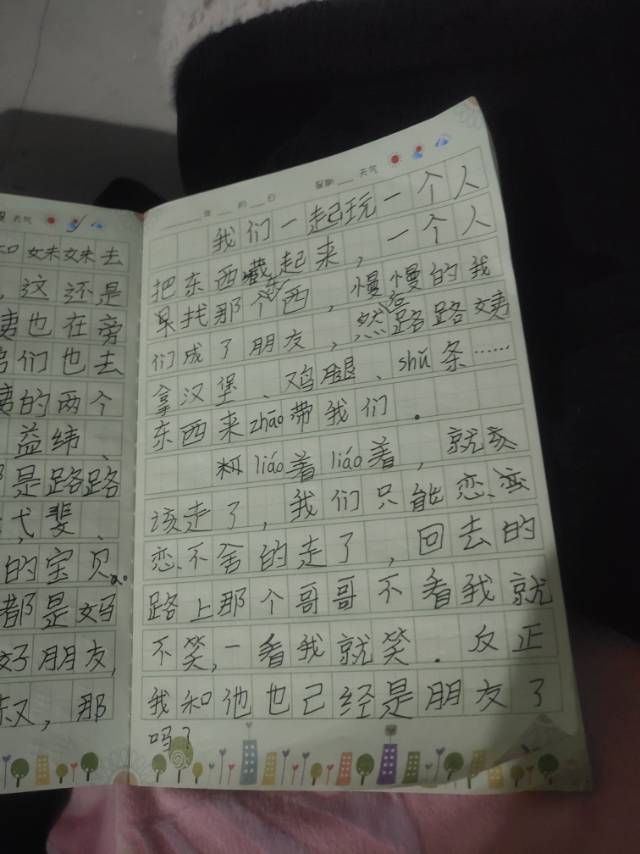 天气
和妹妹去
这还是
姨也在旁
们也去
姨的两个
益纬、
是路路
弋斐、
的宝贝
都是妈
好朋友,
汉,那
年 月 日 星期 天气
我们一起玩一个人
把东西藏起来,一个人
来找那个东西,慢慢的我
们成了朋友,然后路路姨
拿汉堡、鸡腿、shǔ条……
东西来zhāo带我们。
liáo着liáo着,就该
该走了,我们只能恋恋
恋不舍的走了,回去的
路上那个哥哥不看我就
不笑,一看我就笑.反正
我和他也己经是朋友了
吗?